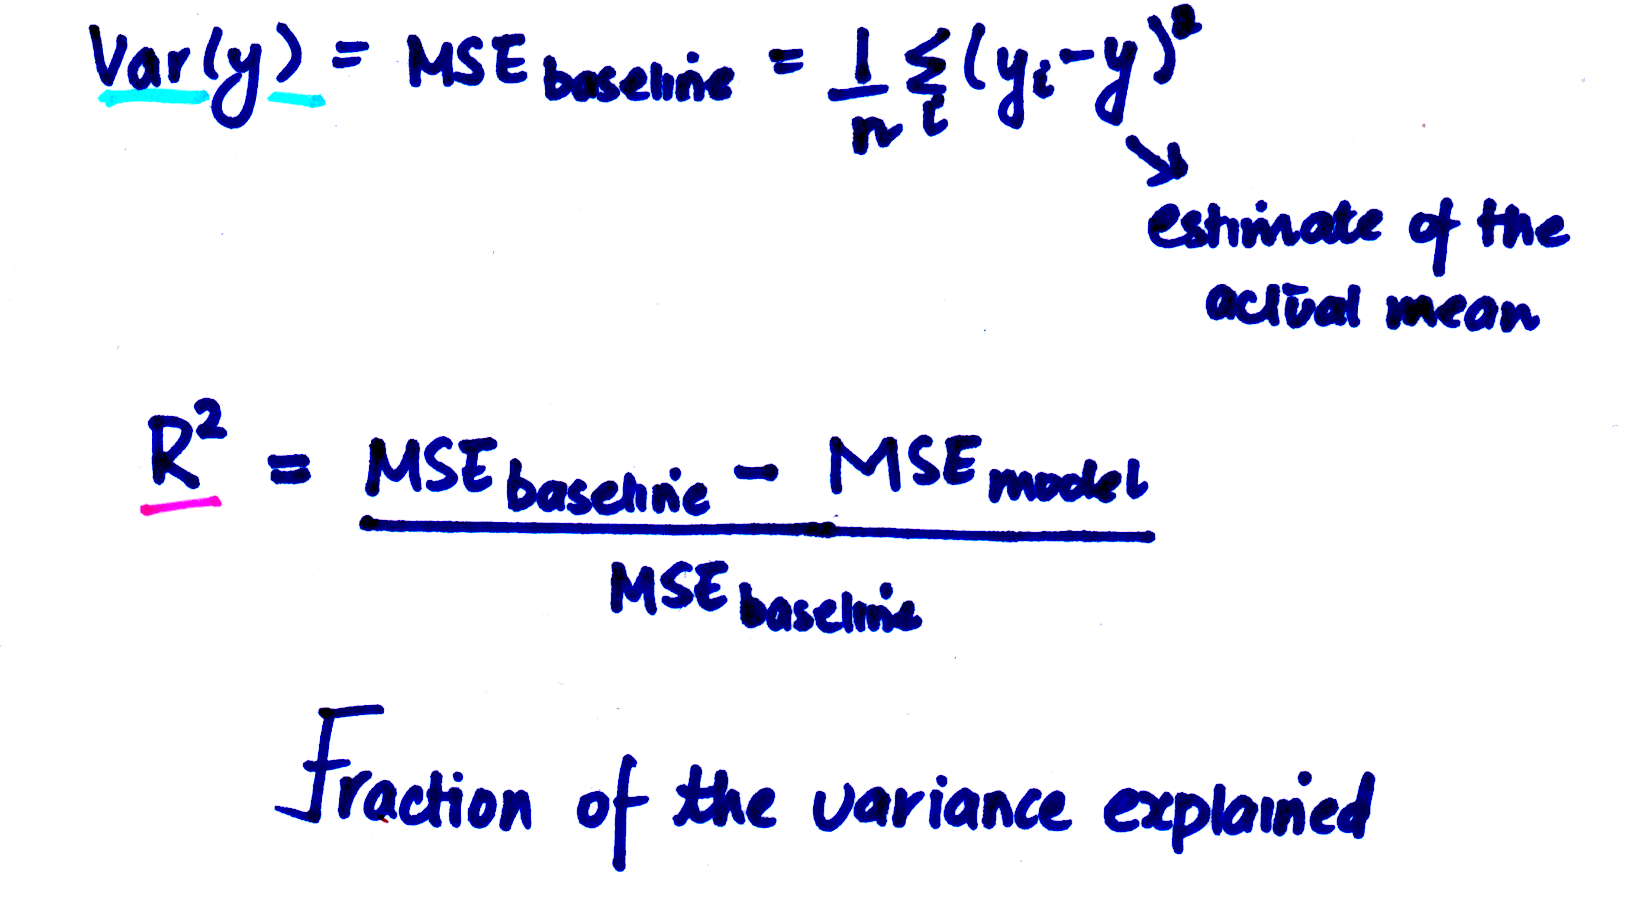 Var(y) = MSE baseline = 1/n Σi (yi - y)²
estimate of the
actual mean
R² = MSE baseline - MSE model
MSE baseline
Fraction of the variance explained